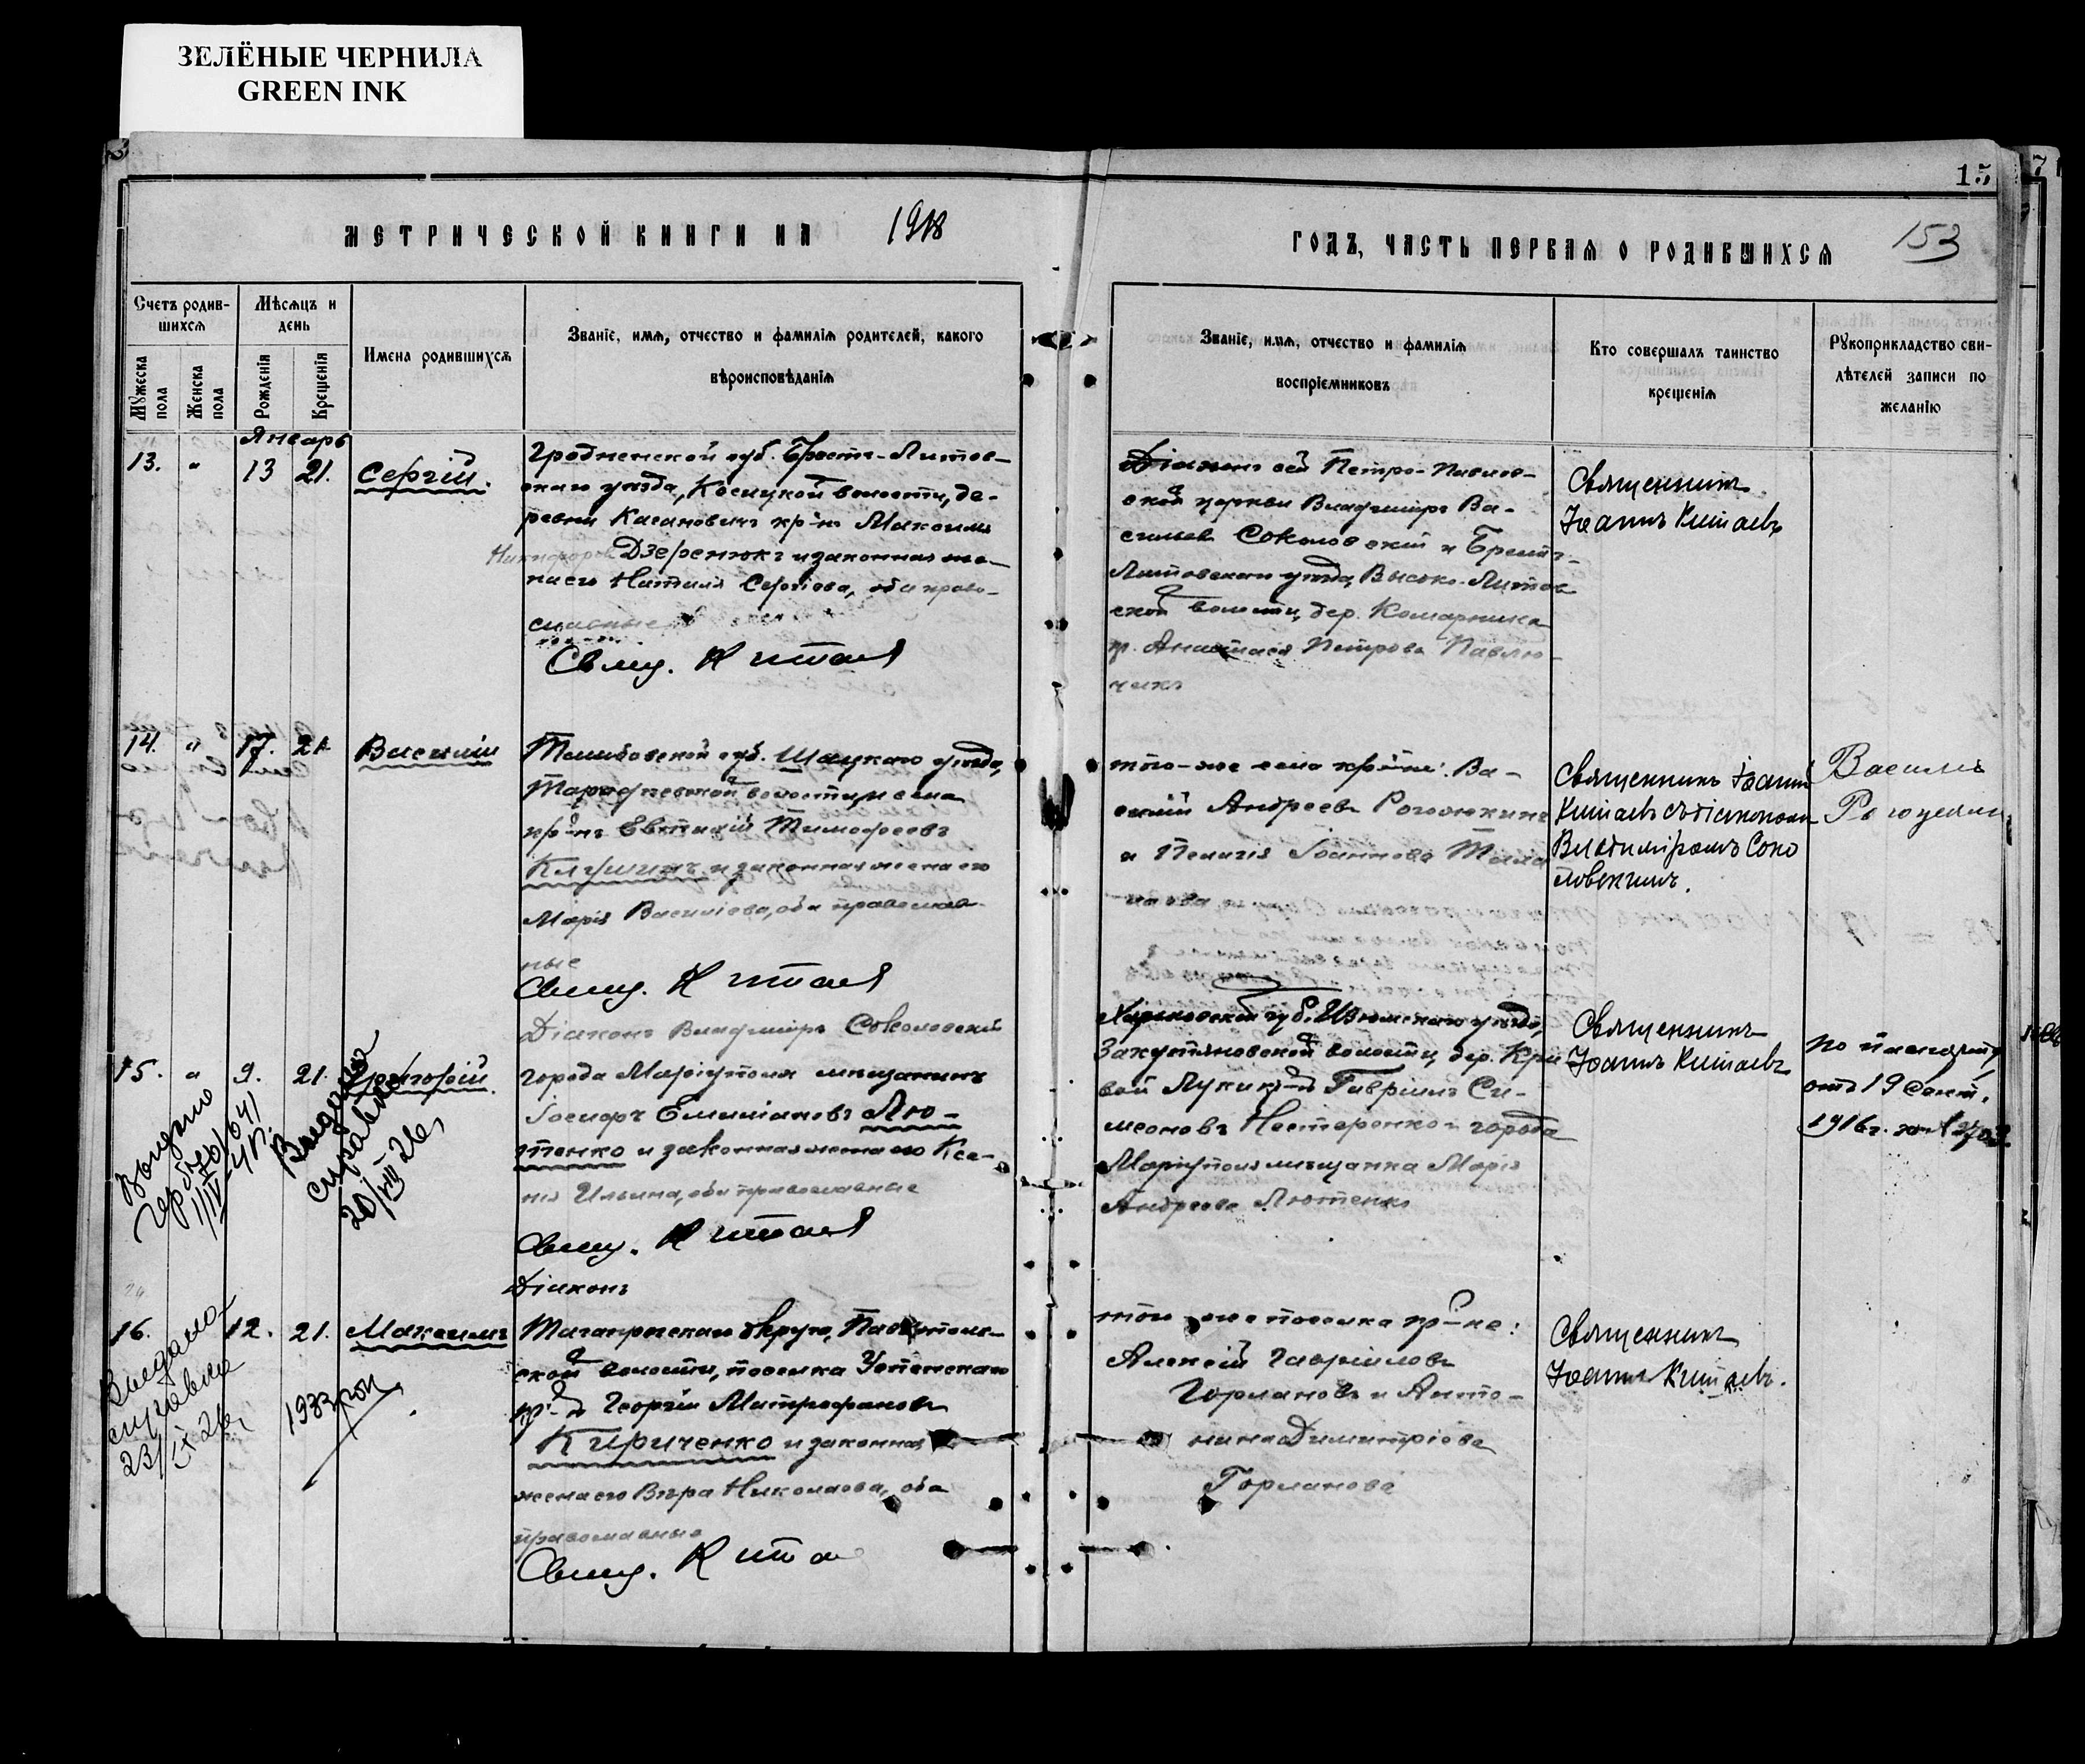 ЗЕЛЁНЫЕ ЧЕРНИЛА
GREEN INK
15
МЕТРИЧЕСКОЙ КНИГИ НА 1918
ГОДЪ, ЧАСТЬ ПЕРВАЯ О РОДИВШИХСЯ
153
Счетъ родив-
шихся
Мѣсяцъ и
день
Мужеска
пола
Женска
пола
Рожденія
Крещенія
Имена родившихся
Званіе, имя, отчество и фамилія родителей, какого
вѣроисповѣданія
Званіе, имя, отчество и фамилія
воспріемниковъ
Кто совершалъ таинство
крещенія
Рукоприкладство сви-
дѣтелей записи по
желанію
Январь
13. " 13 21. Сергій.
Гродненской губ. Брестъ-Литов-
скаго уѣзда, Косицкой волости, де-
ревни кр-нъ Максимъ
Никифоровъ Дзеренюкъ и законная же-
на его Наталія Сергіева, оба право-
славные
Свящ. Китаев
Діаконъ сей Петро-Павлов-
ской церкви Владиміръ Ва-
сильев Соколовскій и Брестъ-
Литовскаго уѣзда, Высоко-Литов
ской волости, дер. Комарники
Петрова Павлю-
чикъ
Священникъ
Іоаннъ Китаевъ
14. " 17. 21. Василій
Тамбовской губ. Шацкаго уѣзда,
волости и села
кр-нъ Евтихій Тимофеевъ
Клушинъ и законная жена его
Марія Василіева, оба православ-
ные
Свящ. Китаев
того-же села кр-не: Ва-
силій Андреевъ
и Пелагія Іоаннова
Священникъ Іоаннъ
Китаевъ съ діакономъ
Владиміромъ Соко
ловскимъ.
Василій
Діаконъ Владиміръ Соколовскій
15. " 9. 21. Григорій.
города Маріуполя мѣщанинъ
Іосифъ Емиліановъ Лю-
тенко и законная жена его Ксе-
нія Ильина, оба православные
Свящ. Китаев
Діаконъ
Харьковской губ. Изюмскаго уѣзда,
волости, дер. Кри
вой Луки кр-нъ Гавріилъ Си-
меоновъ Нестеренко и города
Маріуполя мѣщанка Марія
Андреева Лютенко
Священникъ
Іоаннъ Китаевъ
по паспорту
отъ 19 Сент.
1916 г. за №
Выдано
Выдана
справка
20/VIII 26
16. 12. 21. Максимъ
Таганрогскаго округа,
ской волости, поселка Успенскаго
кр-нъ Георгій Митрофановъ
Кириченко и законная
жена его Вѣра Николаева, оба
православные
Свящ. Кита
того же поселка кр-не:
Алексій Гавріиловъ
Горлановъ и Анто-
нина Димитріева
Горланова
Священникъ
Іоаннъ Китаевъ.
Выдана
справка
23/IX 26
1933 год